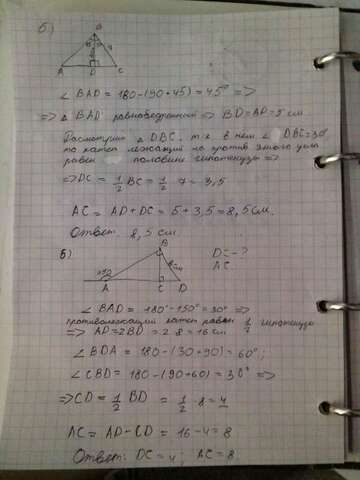 б)
B
A D C
∠ BAD = 180-(90+45)=45° =>
=> Δ BAD равнобедренный => BD=AD=5 см
Рассмотрим Δ DBC, т.к. в нем ∠ DBC=30°
то катет лежащий на против этого угла
равен половине гипотенузы =>
=> DC = 1/2 BC = 1/2 · 7 = 3,5
AC = AD + DC = 5 + 3,5 = 8,5 см.
Ответ: 8,5 см.
б)
B
DC - ?
AC
8см
150°
A C D
∠ BAD = 180° - 150° = 30° =>
противолежащий катет равен 1/2 гипотенузы
=> AD = 2BD = 2·8 = 16 см
∠ BDA = 180 - (30+90) = 60°;
∠ CBD = 180 - (90+60) = 30° =>
=> CD = 1/2 BD = 1/2 · 8 = 4
AC = AD - CD = 16 - 4 = 8
Ответ: DC = 4; AC = 8.